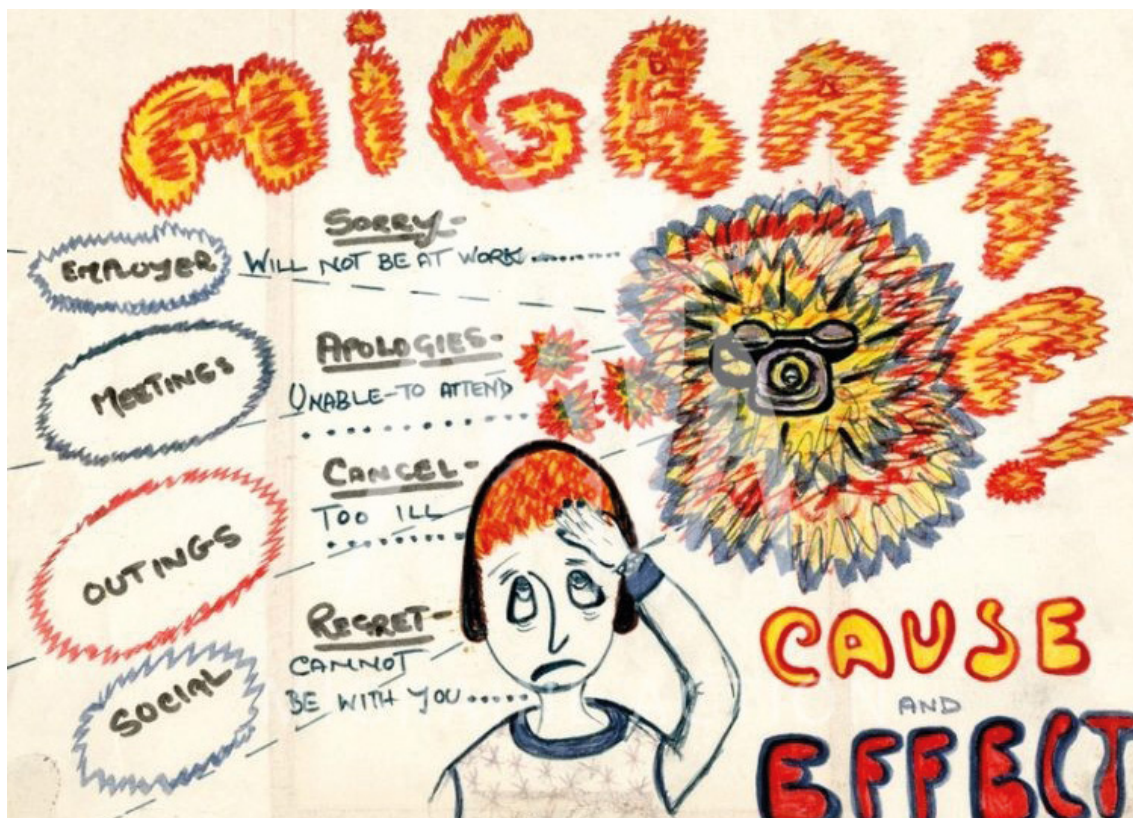 MiGRAiNE!
EMPLOYER
SORRY-
WILL NOT BE AT WORK..........
MEETINGS
APOLOGIES-
UNABLE-TO ATTEND
..............
OUTINGS
CANCEL-
TOO ILL
..............
SOCIAL
REGRET-
CANNOT
BE WITH YOU......
CAUSE
AND
EFFECT